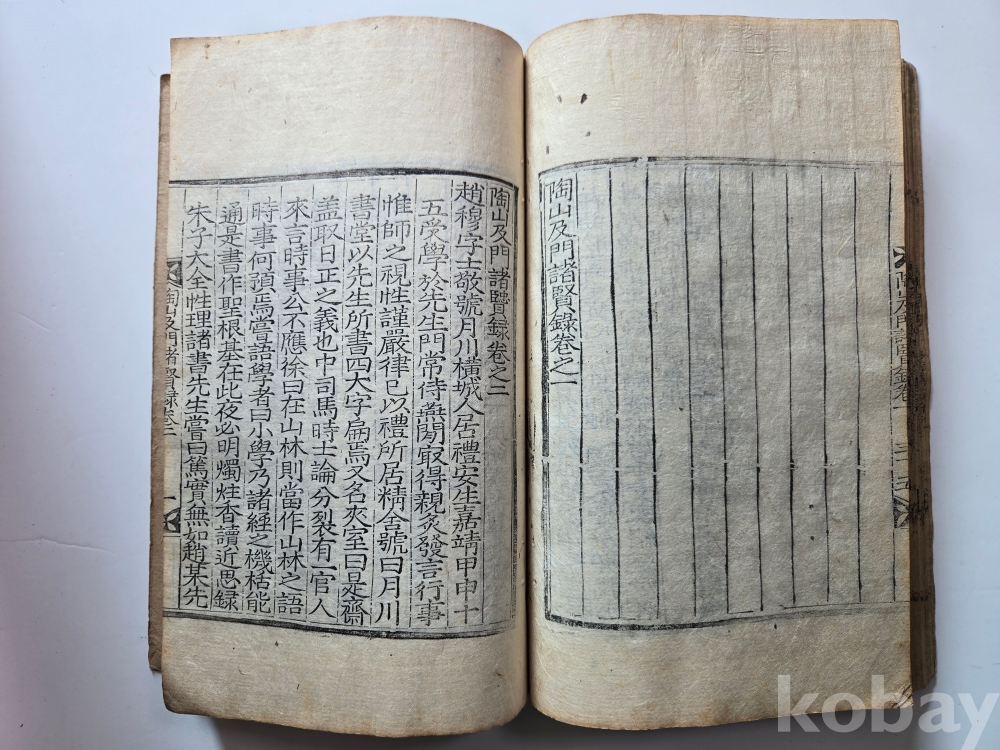 陶山及門諸賢錄卷一
三十五
陶山及門諸賢錄卷之一
陶山及門諸賢錄卷之二
趙穆字士敬號月川橫城人居禮安生嘉靖甲申十
五受學於先生門常侍燕閒取得親炙發言行事
惟師之視性謹嚴律己以禮所居精舍號曰月川
書堂以先生所書四大字扁焉又名夾室曰是齋
盖取日正之義也中司馬時士論分裂有一官人
來言時事公不應徐曰在山林則當作山林之語
時事何預焉嘗語學者曰小學乃諸經之機栝能
通是書作聖根基在此夜必明燭炷香讀近思錄
朱子大全性理諸書先生嘗曰篤實無如趙某先
陶山及門諸賢錄卷二
一
kobay